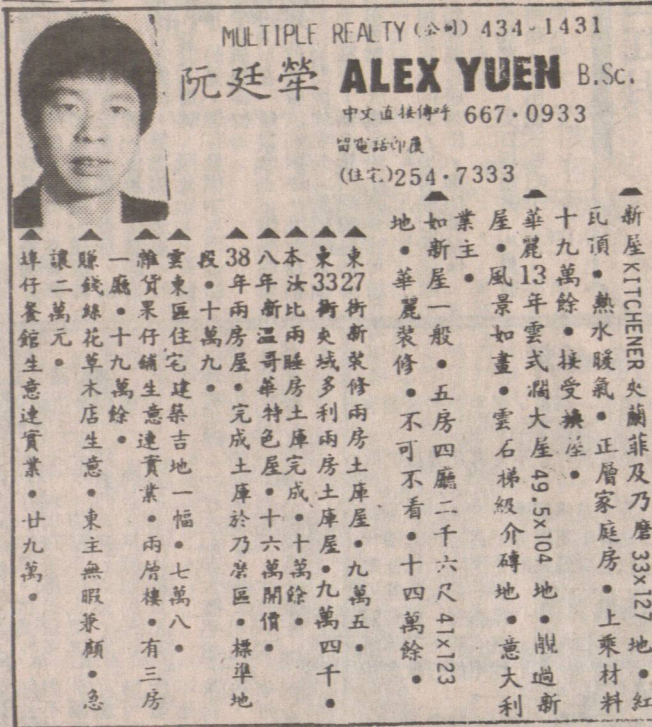 MULTIPLE REALTY (公司) 434-1431
阮廷犖 ALEX YUEN B.Sc.
中文直接傳呼 667·0933
留電話即覆
(住宅) 254·7333
▲新屋KITCHENER夾蘭菲及乃磨33x127地•紅
瓦頂•熱水暖氣•正層家庭房•上乘材料
十九萬餘•接受換屋•
▲華麗13年雲式濶大屋49.5x104地•靚過新
屋•風景如畫•雲石梯級介磚地•意大利
業主•
▲如新屋一般•五房四廳二千六尺41x123
地•華麗裝修•不可不看•十四萬餘•
▲東27街新裝修兩房土庫屋•九萬五•
▲東33街夾域多利兩房土庫屋•九萬四千•
▲本汝比兩睡房土庫完成•十萬餘•
▲八年新溫哥華特色屋•十六萬開價•
▲38年兩房屋•完成土庫於乃磨區•標準地
段•十萬九•
▲雲東區住宅建築吉地一幅•七萬八•
▲雜貨果仔鋪生意連實業•兩層樓•有三房
一廳•十九萬餘•
▲賺錢綠花草木店生意•東主無暇兼顧•急
讓二萬元•
▲埠仔餐館生意連實業•廿九萬•